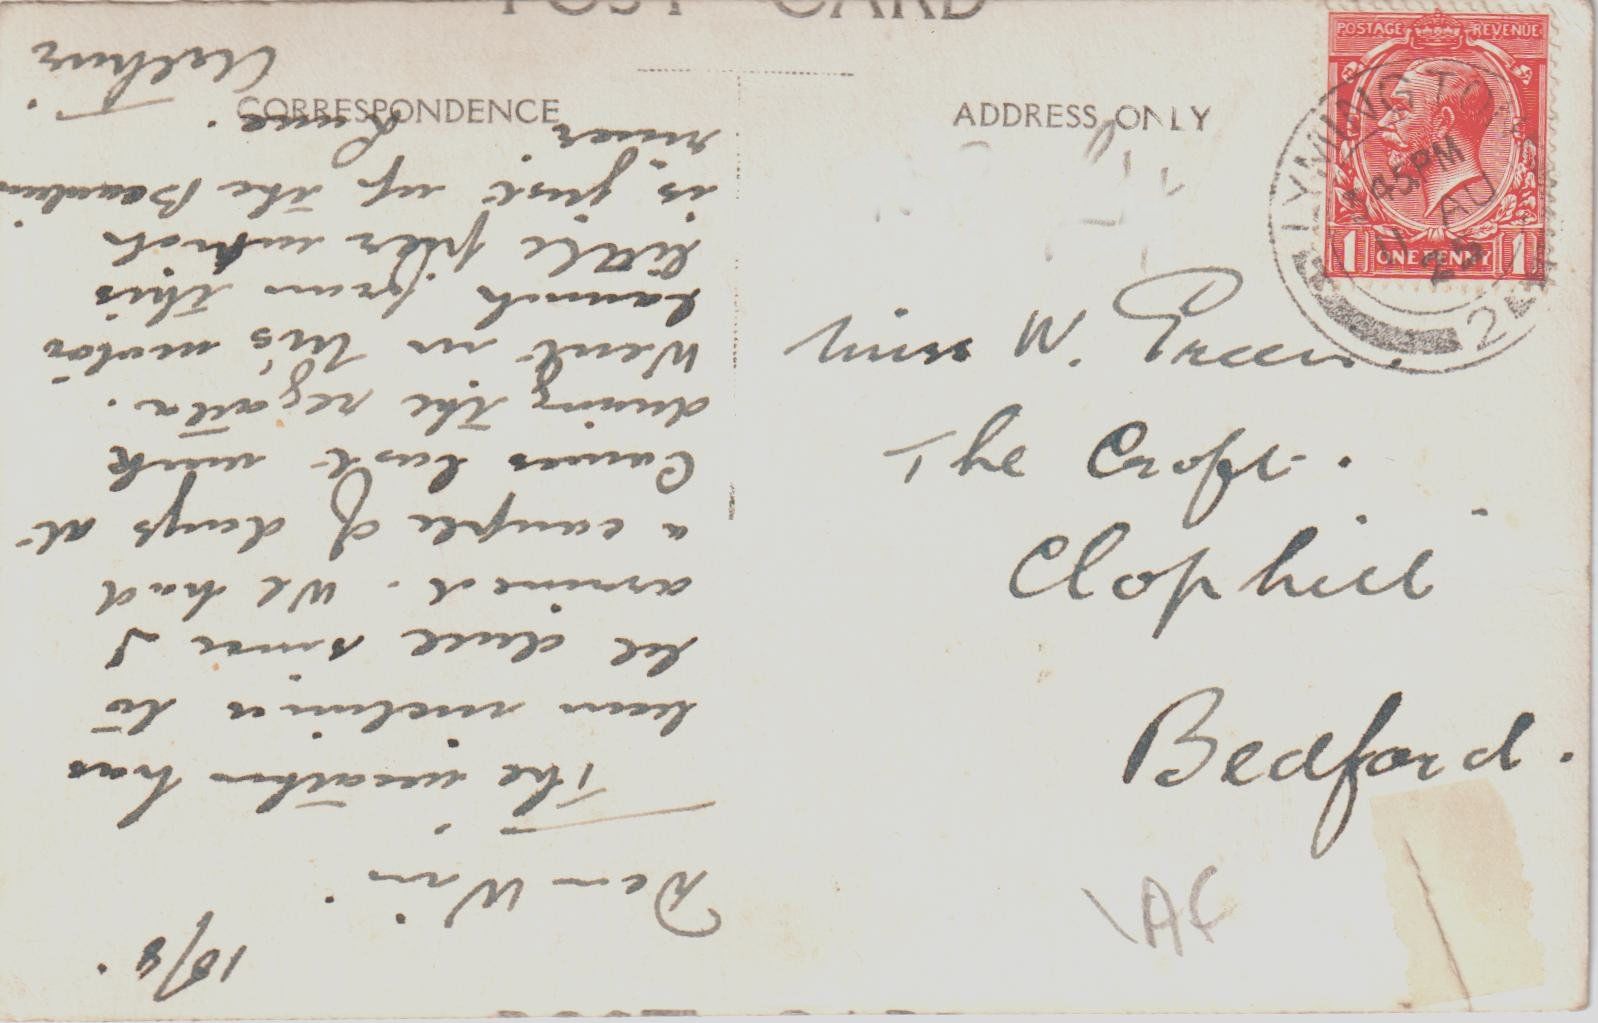 POST CARD
CORRESPONDENCE
ADDRESS ONLY
POSTAGE REVENUE
1 ONE PENNY 1
LYMINGTON
145 PM
11 AU
25
2
Miss W. Green.
The Croft.
Clophill
Bedford.
10/8.
Dear Win
The weather has
been inclined to
be dull since I
arrived. We had
a couple of days at
Cowes last week
during the regatta.
Went in his motor
launch from this
little pier which
is just up the Beaulieu
river
Arthur